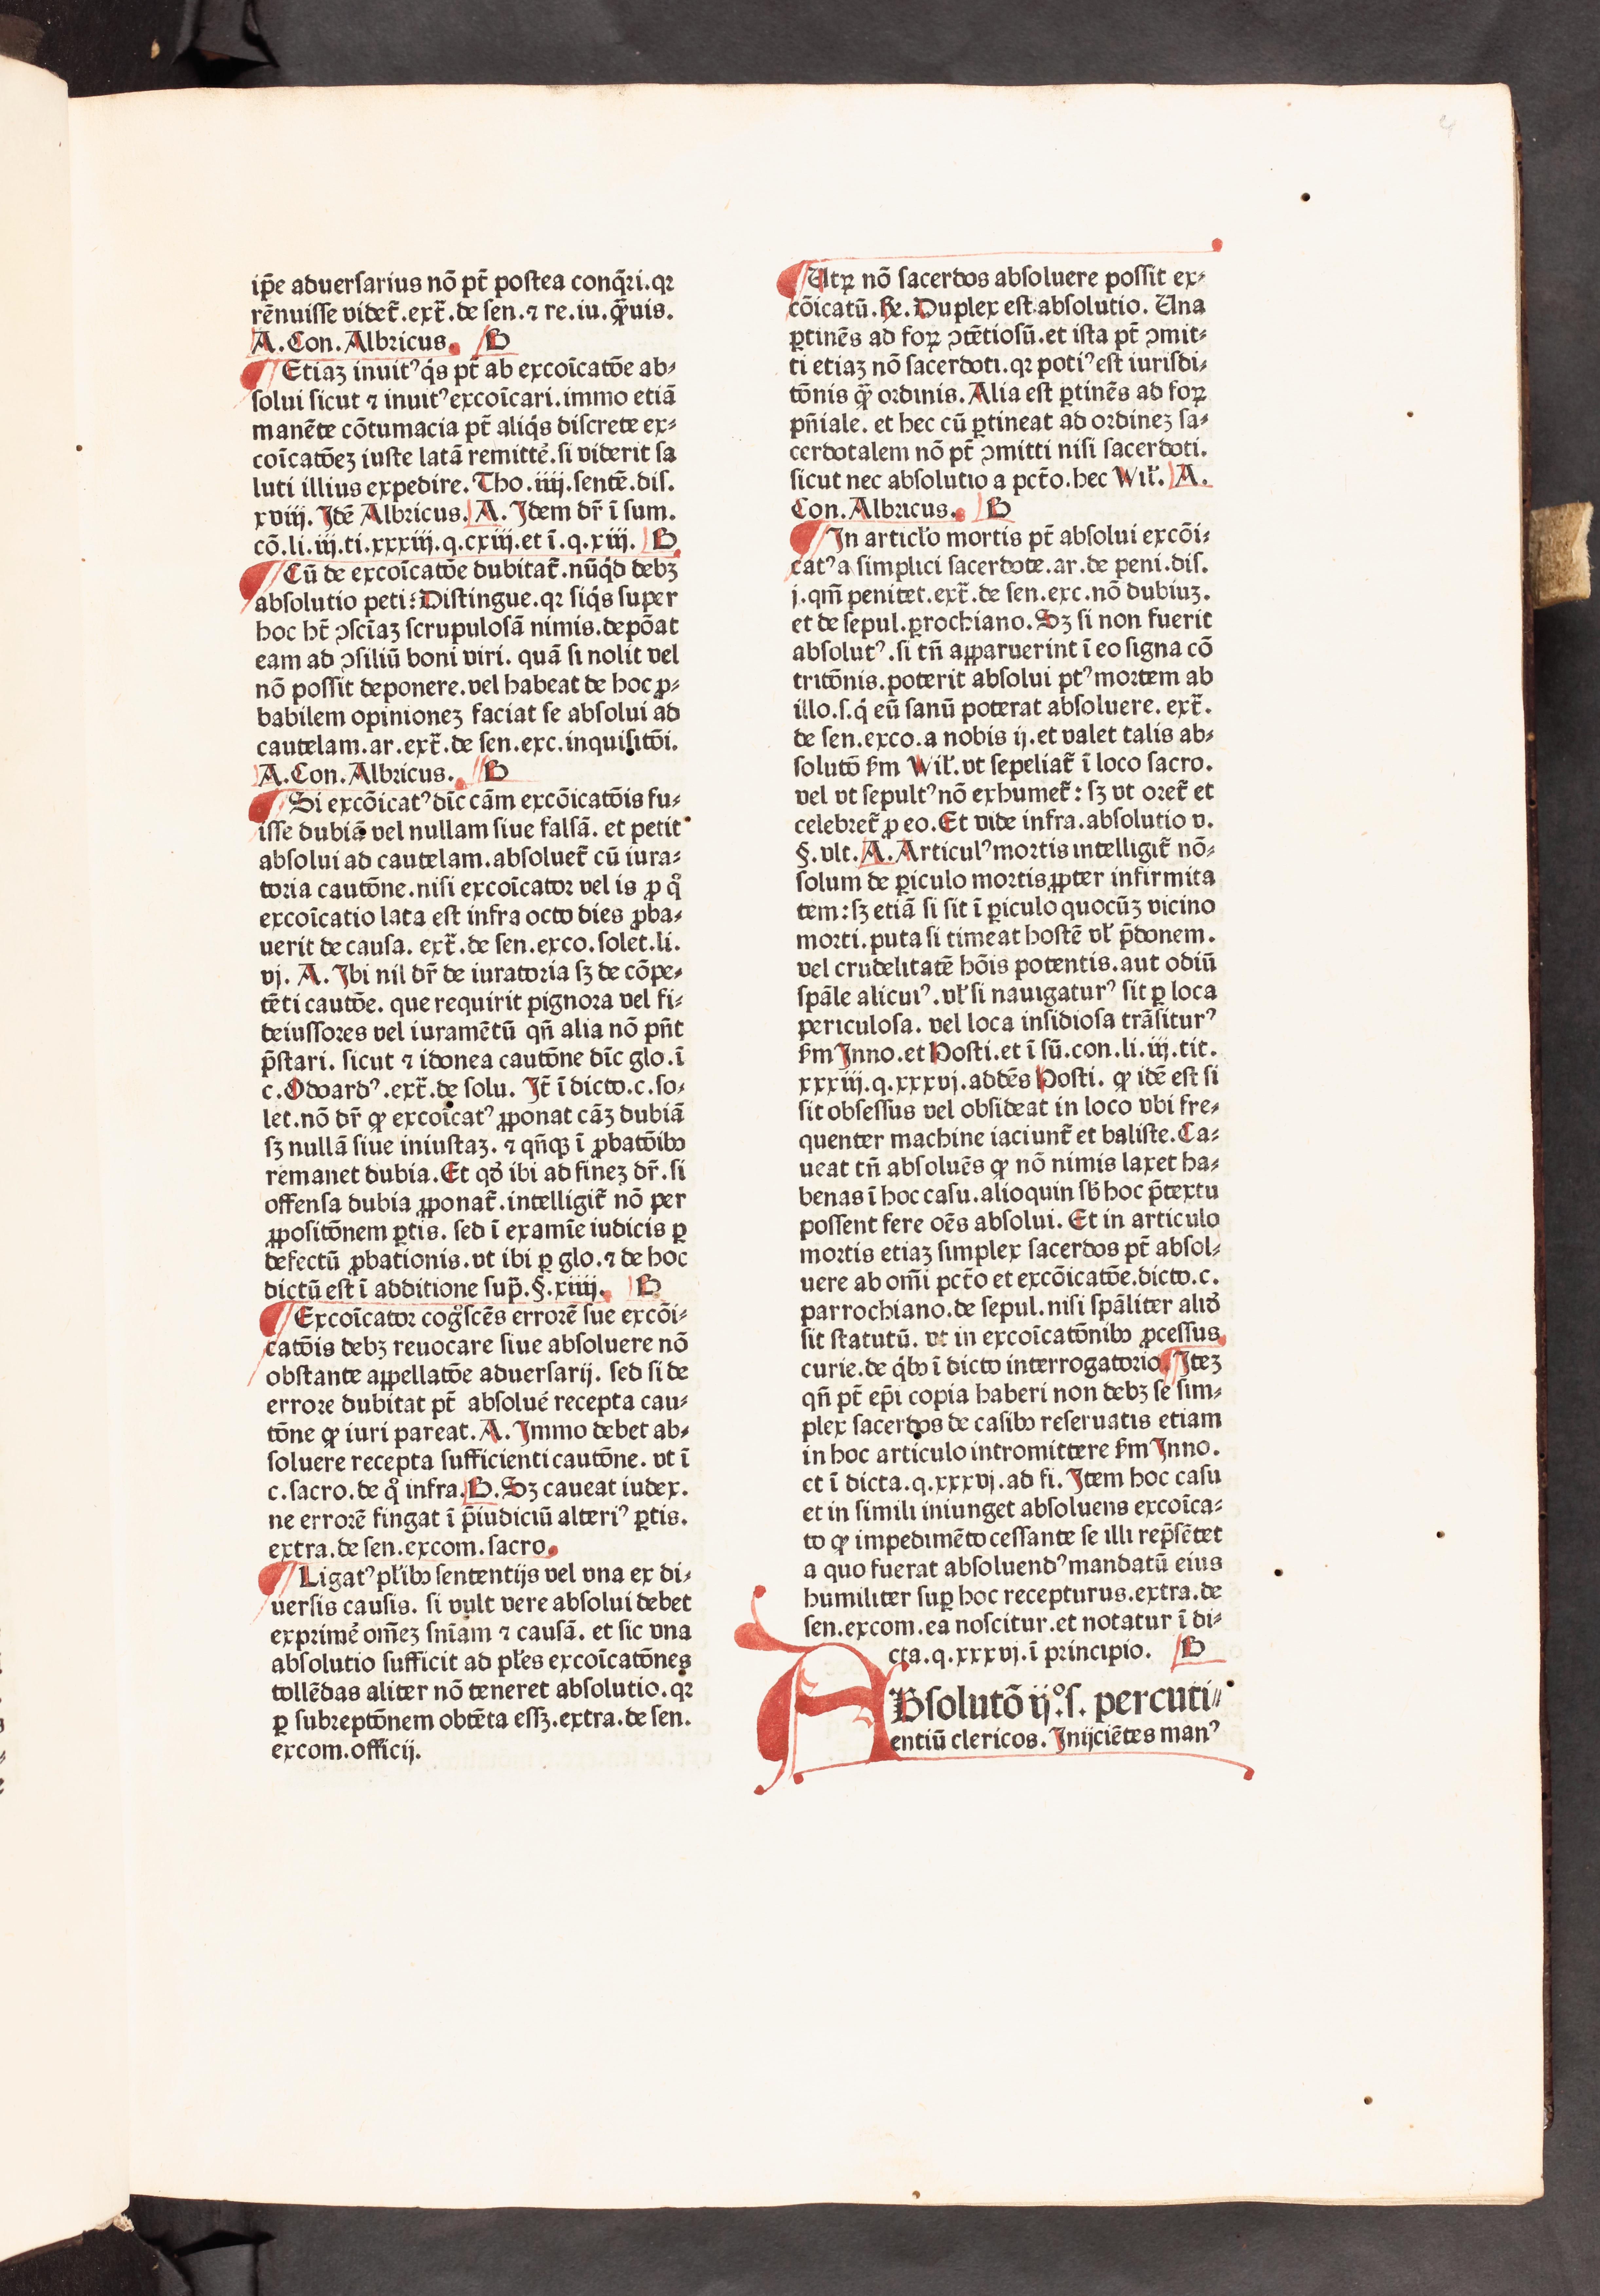 ip̄e aduersarius nō pt̄ postea conq̄ri.qꝛ
rēnuisse videt̄.ext̄.de sen.⁊ re.iu.q̄uis.
A.Con.Albricus. B
¶ Etiaꝫ inuitꝰ q̇s pt̄ ab excoīcatōe ab⸗
solui sicut ⁊ inuitꝰ excoīcari.immo etiā
manēte cōtumacia pt̄ aliq̇s discrete ex⸗
coīcatōeꝫ iuste latā remittē.si viderit sa
luti illius expedire.Tho.iiij.sentē.dis.
xviij.Idē Albricus.A.Idem dr̄ ī sum.
cō.li.iij.ti.xxxiij.q.cxiij.et ī.q.xiij. B
¶ Cū de excoīcatōe dubitat̄.nūq̇d debꝫ
absolutio peti:Distingue.qꝛ siq̇s super
hoc ht̄ ꝯsciāꝫ scrupulosā nimis.depōat
eam ad ꝯsiliū boni viri.quā si nolit vel
nō possit deponere.vel habeat de hoc ꝓ⸗
babilem opinioneꝫ faciat se absolui ad
cautelam.ar.ext̄.de sen.exc.inquisitōi.
A.Con.Albricus. B
¶ Si excōicatꝰ dīc cām excōicatōis fu⸗
isse dubiā vel nullam siue falsā. et petit
absolui ad cautelam.absoluet̄ cū iura⸗
toria cautōne.nisi excoīcator vel is ꝓ qͦ
excoīcatio lata est infra octo dies ꝓba⸗
uerit de causa. ext̄.de sen.exco.solet.li.
vj. A. Ibi nil dr̄ de iuratoria sꝫ de cōpe⸗
tēti cautōe. que requirit pignora vel fi⸗
deiussores vel iuramētū qn̄ alia nō pn̄t
p̄stari. sicut ⁊ idonea cautōne dīc glo.ī
c.Odoardꝰ.ext̄.de solu. It̄ ī dicto.c.so⸗
let.nō dr̄ ꝙ excoīcatꝰ ꝓponat cāꝫ dubiā
sꝫ nullā siue iniustaꝫ. ⁊ qn̄qꝫ ī ꝓbatōibꝰ
remanet dubia.Et qđ ibi ad fineꝫ dr̄.si
offensa dubia ꝓponat̄.intelligit̄ nō per
ꝓpositōnem ꝑtis. sed ī examīe iudicis ꝑ
defectū ꝓbationis.vt ibi ꝑ glo.⁊ de hoc
dictū est ī additione sup̄.§.xiiij. B
¶ Excoīcator cogͦscēs errorē sue excōi⸗
catōis debꝫ reuocare siue absoluere nō
obstante appellatōe aduersarij. sed si de
errore dubitat pt̄ absoluē recepta cau⸗
tōne ꝙ iuri pareat.A.Immo debet ab⸗
soluere recepta sufficienti cautōne. vt ī
c.sacro.de qͦ infra.B.Sꝫ caueat iudex.
ne errorē fingat ī p̄iudiciū alteriꝰ ꝑtis.
extra.de sen.excom.sacro.
¶ Ligatꝰ pl̄ibꝰ sententijs vel vna ex di⸗
uersis causis. si vult vere absolui debet
exprimē om̄eꝫ sn̄iam ⁊ causā. et sic vna
absolutio sufficit ad pl̄es excoīcatōnes
tollēdas aliter nō teneret absolutio.qꝛ
ꝑ subreptōnem obtēta essꝫ.extra.de sen.
excom.officij.
¶ Utꝝ nō sacerdos absoluere possit ex⸗
cōicatū.Rͤ. Duplex est absolutio. Una
ꝑtinēs ad foꝝ ꝯtētiosū.et ista pt̄ ꝯmit⸗
ti etiaꝫ nō sacerdoti.qꝛ potiꝰ est iurisdi⸗
tōnis qͣꝫ ordinis.Alia est ꝑtinēs ad foꝝ
pn̄iale. et hec cū ꝑtineat ad ordineꝫ sa⸗
cerdotalem nō pt̄ ꝯmitti nisi sacerdoti.
sicut nec absolutio a pct̄o.hec Wil̄. A.
Con.Albricus. B
¶ In articl̄o mortis pt̄ absolui excōi⸗
catꝰ a simplici sacerdote.ar.de peni.dis.
j.qm̄ penitet.ext̄.de sen.exc.nō dubiuꝫ.
et de sepul.ꝑrochiano.Sꝫ si non fuerit
absolutꝰ.si tn̄ apparuerint ī eo signa cō
tritōnis.poterit absolui ptꝰ mortem ab
illo.s.q̇ eū sanū poterat absoluere. ext̄.
de sen.exco.a nobis ij.et valet talis ab⸗
solutō ẜm Wil̄.vt sepeliat̄ ī loco sacro.
vel vt sepultꝰ nō exhumet̄: sꝫ vt oret̄ et
celebret̄ ꝓ eo.Et vide infra.absolutio v.
§.vlt.A.Articulꝰ mortis intelligit̄ nō⸗
solum de ꝑiculo mortis ꝓpter infirmita
tem:sꝫ etiā si sit ī ꝑiculo quocūꝫ vicino
morti.puta si timeat hostē vl̄ p̄donem.
vel crudelitatē hōis potentis.aut odiū
spāle alicuiꝰ.vl̄ si nauigaturꝰ sit ꝑ loca
periculosa. vel loca insidiosa trāsiturꝰ
ẜm Inno.et Hosti.et ī sū.con.li.iij.tit.
xxxiij.q.xxxvj.addēs Hosti. ꝙ idē est si
sit obsessus vel obsideat in loco vbi fre⸗
quenter machine iaciunt̄ et baliste.Ca⸗
ueat tn̄ absoluēs ꝙ nō nimis laxet ha⸗
benas ī hoc casu.alioquin sb̄ hoc p̄textu
possent fere oēs absolui. Et in articulo
mortis etiaꝫ simplex sacerdos pt̄ absol⸗
uere ab om̄i pct̄o et excōicatōe.dicto.c.
parrochiano.de sepul.nisi spāliter aliđ
sit statutū. vt in excoīcatōnibꝰ ꝓcessus
curie.de q̇bꝰ ī dicto interrogatorio ¶ Iteꝫ
qn̄ pt̄ ep̄i copia haberi non debꝫ se sim⸗
plex sacerdos de casibꝰ reseruatis etiam
in hoc articulo intromittere ẜm Inno.
et ī dicta.q.xxxvj.ad fi. Item hoc casu
et in simili iniunget absoluens excoīca⸗
to ꝙ impedimēto cessante se illi rep̄sētet
a quo fuerat absoluendꝰ mandatū eius
humiliter suꝑ hoc recepturus.extra.de
sen.excom.ea noscitur.et notatur ī di⸗
cta.q.xxxvj.ī principio. B
ABsolutō ij°.s. percuti⸗
entiū clericos. Inijciētes manꝰ